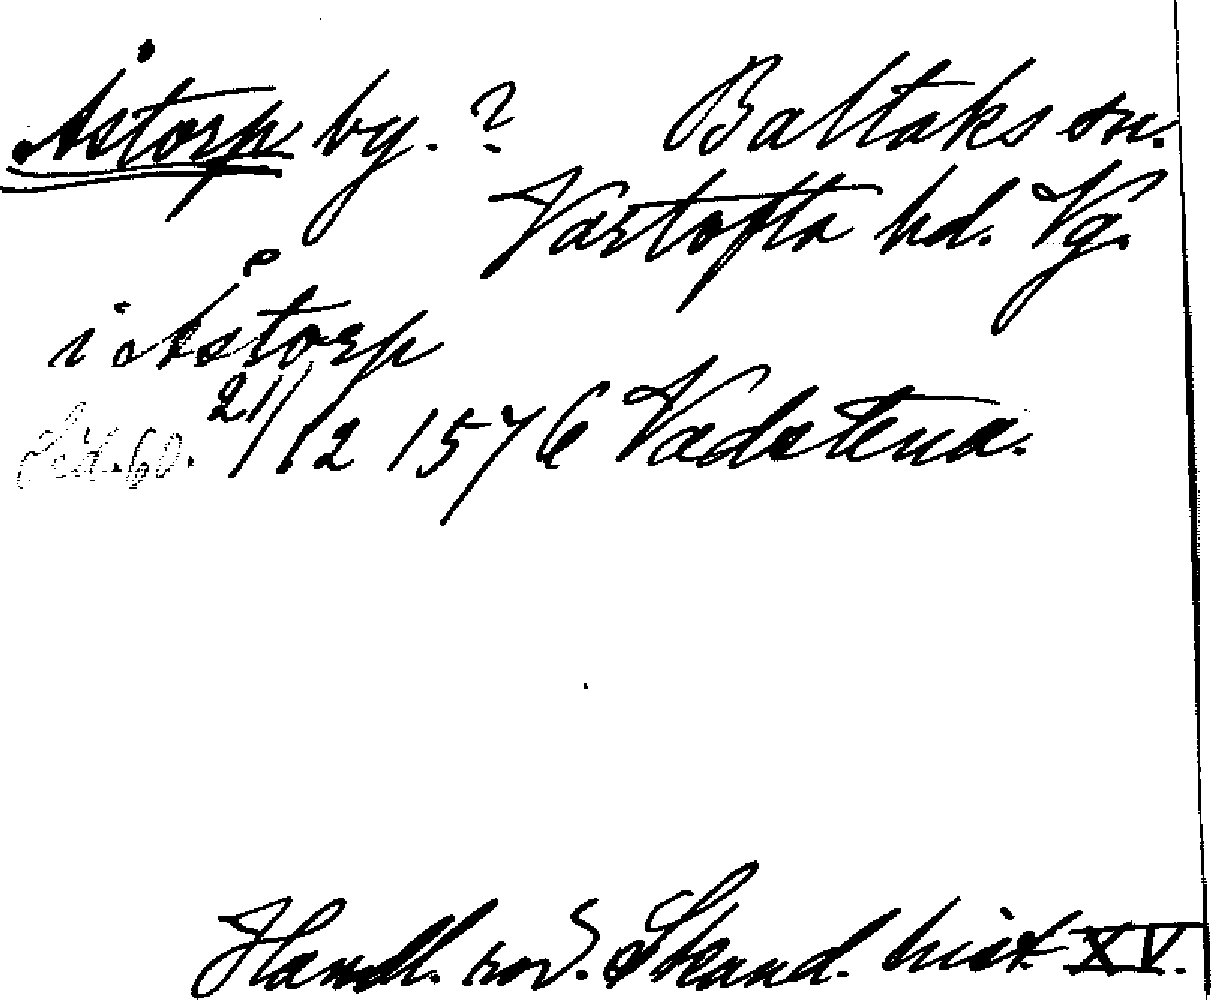 Åstorp by. ? Baltaks sn.
Vartofta hd. Vg.
i Åstorp
Sid. 60. 21/12 1576 Vadstena.
Handl. rör. Skand. hist XV.